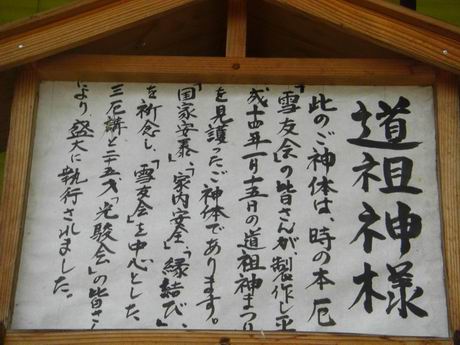 道祖神様
此のご神体は、時の本厄
「雪友会」の皆さんが、製作し平
成十四年一月十五日の道祖神まつり
を見護ったご神体であります。
「国家安泰」「家内安全」「縁結び」
を祈念し、「雪友会」を中心とした
三厄講と二十五才「光駿会」の皆さ
により、盛大に執行されました。